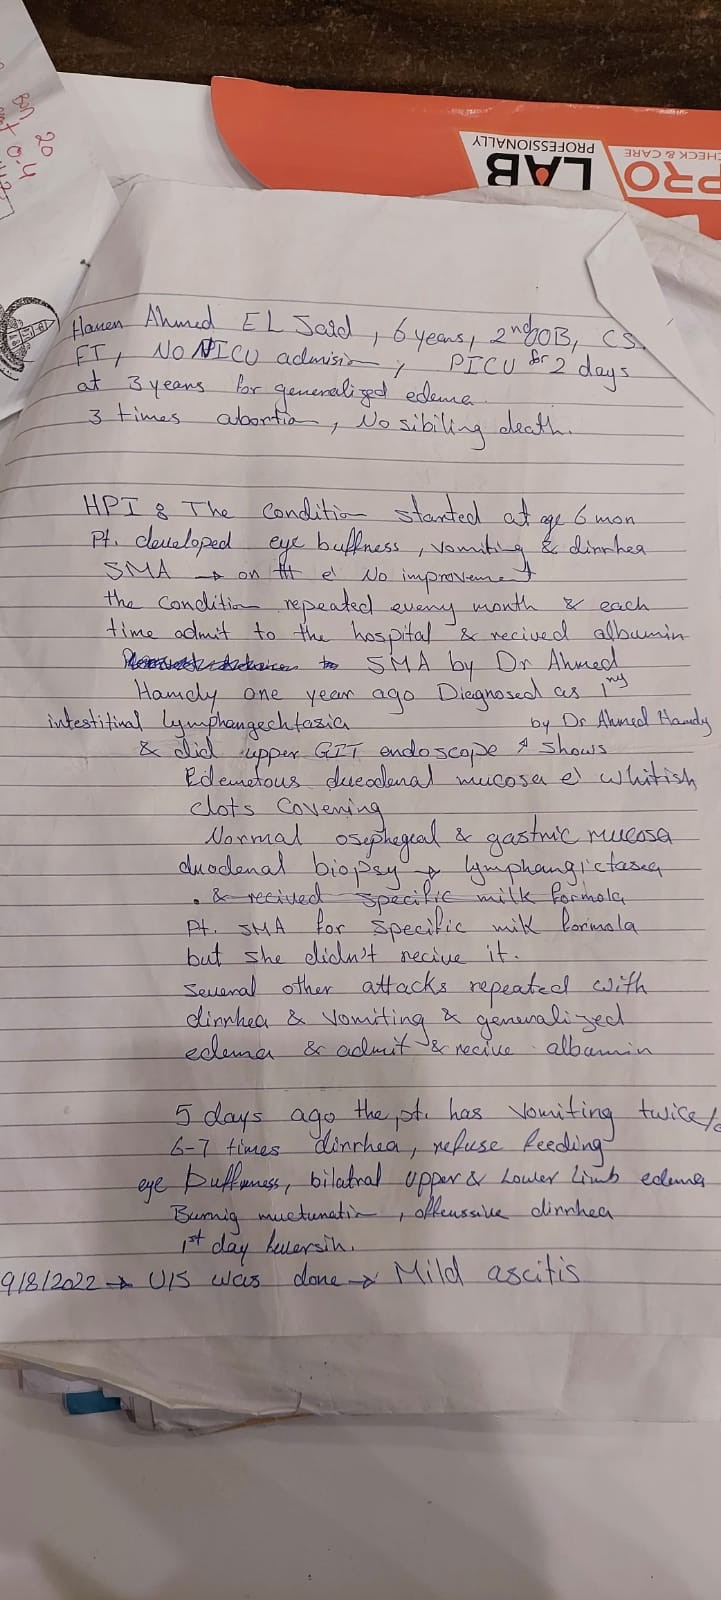 20
0.4
CHECK & CARE
PROFESSIONALLY
PRO LAB
Hanen Ahmed EL Said, 6 years, 2nd OB, CS
FT, NO NICU admision, PICU for 2 days
at 3 years for generalized edema
3 times abortion, No sibiling death.
HPI : The condition started at age 6 mon
Pt. developed eye buffness, vomiting & dirrhea
SMA → on ttt e' No improvement
the condition repeated every month & each
time admit to the hospital & recived albumin
to SMA by Dr Ahmed
Hamdy one year ago Diegnosed as 1ry
intestitinal lymphangechtazia by Dr Ahmed Hamdy
& did upper GIT endoscope & shows
Edemetous dueodenal mucosa e' whitish
clots covening
Normal osephegeal & gastric mucosa
duodenal biopsy → lymphangictasea
. & recived specific milk formola
Pt. SMA for specific milk formola
but she didn't recive it.
several other attacks repeated with
dirrhea & vomiting & generalized
edema & admit & recive albamin
5 days ago the pt. has vomiting twice/d
6-7 times dirrhea, refuse feeding
eye puffness, bilatral upper & Lower Limb edema
Burnig muctunatin, offenssive dirrhea
1st day
9/8/2022 → U/S was done → Mild ascitis